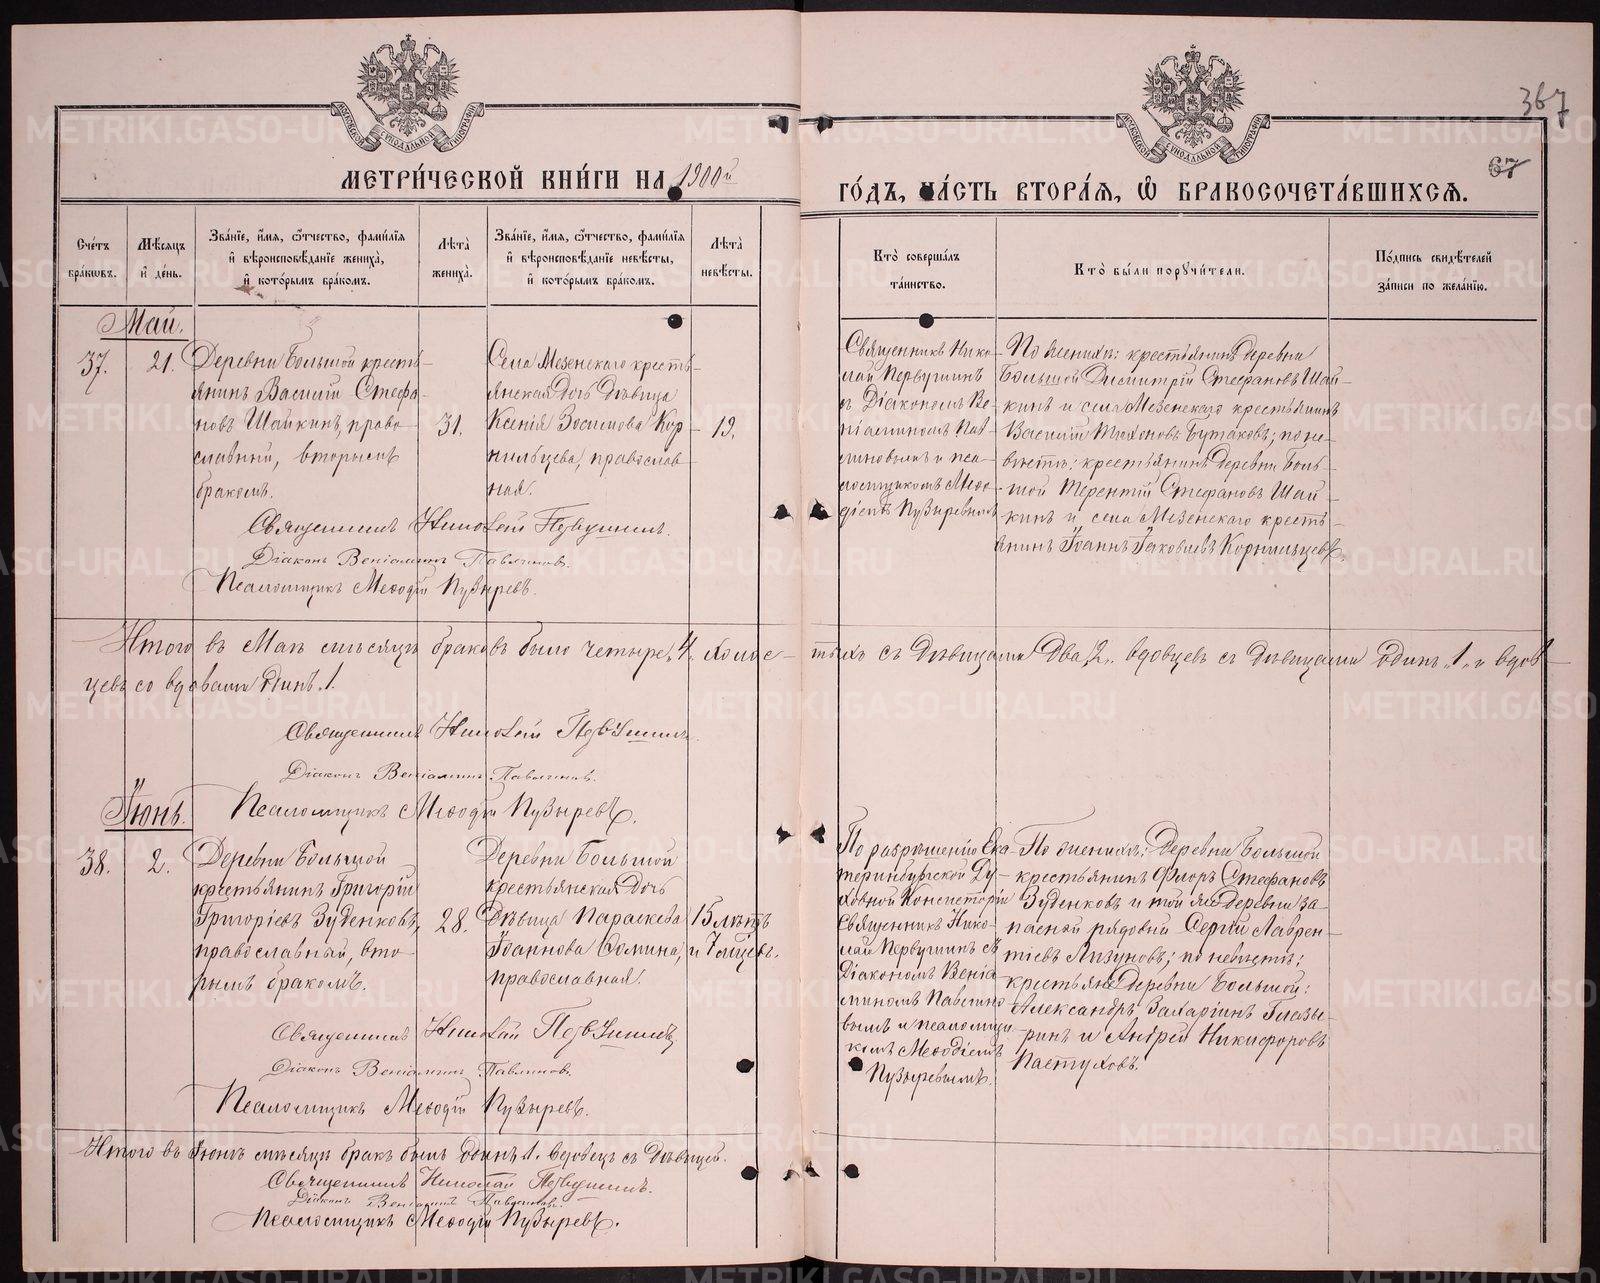 367
67
МОСКОВСКОЙ СѴНОДАЛЬНОЙ ТИПОГРАФІИ
МОСКОВСКОЙ СѴНОДАЛЬНОЙ ТИПОГРАФІИ
МЕТРИ́ЧЕСКОЙ КНИ́ГИ НА 1900й
ГО́ДЪ, ЧА́СТЬ ВТОРА́Я, Ѡ҆ БРАКОСОЧЕТА́ВШИХСЯ.
Сче́тъ бра́кѡвъ.
Мѣ́сяцъ и҆ де́нь.
Зва́нїе, и҆́мя, ѻ҆́тчество, фами́лїя и҆ вѣроисповѣ́данїе жениха̀, и҆ кото́рымъ бра́комъ.
Лѣ́та жениха̀.
Зва́нїе, и҆́мя, ѻ҆́тчество, фами́лїя и҆ вѣроисповѣ́данїе невѣ́сты, и҆ кото́рымъ бра́комъ.
Лѣ́та невѣ́сты.
Кто̀ соверша́лъ та́инство.
Кто̀ бы́ли порꙋчи́тели.
По́дпись свидѣ́телей за́писи по жела́нїю.
Май.
37.
21.
Деревни Большой кресть-
янинъ Василій Стефа-
новъ Шайкинъ, право-
славный, вторымъ
бракомъ.
31.
Села Мезенскаго кресть-
янская дочь дѣвица
Ксенія Зосимова Кор-
нильцева, православ-
ная.
19.
Священникъ Нико-
лай Первушинъ
съ Діакономъ Ве-
ніаминомъ Пав-
линовымъ и пса-
ломщикомъ Меѳо-
діемъ Пузыревымъ
По женихѣ: крестьянинъ деревни
Большой Димитрій Стефановъ Шай-
кинъ и села Мезенскаго крестьянинъ
Василій Тихоновъ Бутаковъ; по не-
вѣстѣ: крестьянинъ деревни Боль-
шой Терентій Стефановъ Шай-
кинъ и села Мезенскаго кресть-
янинъ Іоаннъ Іаковлевъ Корнильцевъ.
Священникъ Николай Первушинъ.
Діаконъ Веніаминъ Павлиновъ.
Псаломщикъ Меѳодій Пузыревъ.
Итого въ Маѣ мѣсяцѣ браковъ было четыре „4„ холос-
тыхъ съ дѣвицами два „2„ вдовцевъ съ дѣвицами одинъ „1„ и вдов-
цевъ со вдовами одинъ „1.
Священникъ Николай Первушинъ.
Діаконъ Веніаминъ Павлиновъ.
Псаломщикъ Меѳодій Пузыревъ.
Іюнь.
38.
2.
Деревни Большой
крестьянинъ Григорій
Григоріевъ Зуденковъ,
православный, вто-
рымъ бракомъ.
28.
Деревни Большой
крестьянская дочь
дѣвица Параскева
Іоаннова Сомина,
православная.
15 лѣтъ
и 7 мѣцевъ.
По разрѣшенію Ека-
теринбургской Ду-
ховной Консисторіи
Священникъ Нико-
лай Первушинъ съ
Діакономъ Веніа-
миномъ Павлино-
вымъ и псаломщи-
комъ Меѳодіемъ
Пузыревымъ.
По женихѣ: Деревни Большой
крестьянинъ Флоръ Стефановъ
Зуденковъ и той же деревни за-
пасной рядовой Сергій Лаврен-
тіевъ Лизуновъ; по невѣстѣ:
крестьяне деревни Большой:
Александръ Захаріинъ Глазы-
ринъ и Андрей Никифоровъ
Пастуховъ.
Священникъ Николай Первушинъ.
Діаконъ Веніаминъ Павлиновъ.
Псаломщикъ Меѳодій Пузыревъ.
Итого въ Іюнѣ мѣсяцѣ бракъ былъ одинъ „1„ вдовецъ съ дѣвицей.
Священникъ Николай Первушинъ.
Діаконъ Веніаминъ Павлиновъ.
Псаломщикъ Меѳодій Пузыревъ.
METRIKI.GASO-URAL.RU